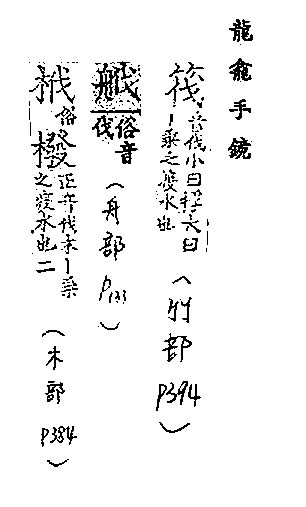 龍龕手鏡
筏 音伐小曰 大曰丨乘之渡水也 (竹部 P394)
俗音伐 (舟部 P133)
栰俗橃正音伐木丨乘之渡水也二 (木部 P384)